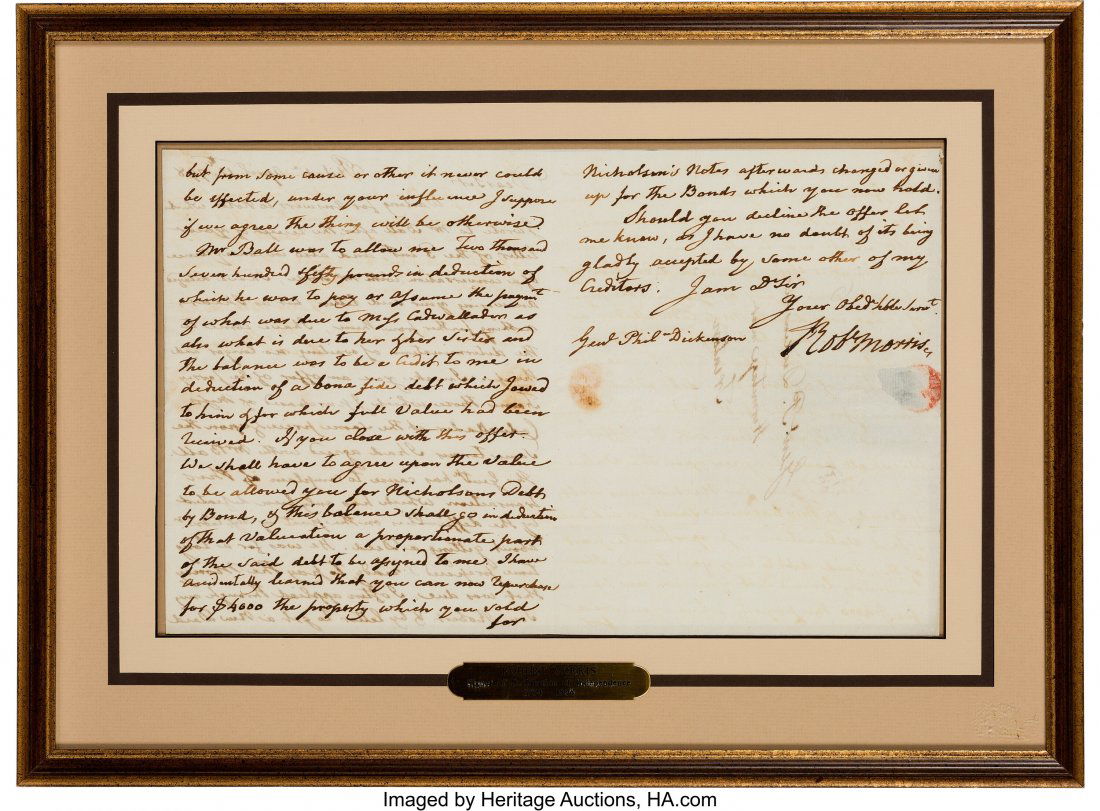 but from some cause or other it never could
be effected, under your influence I suppose
if we agree the thing will be otherwise
Mr Ball was to allow me Two thousand
seven hundred & fifty pounds in deduction of
which he was to pay or assume the paymt
of what was due to Miss Cadwallader as
also what is due to her & her Sister and
the balance was to be a Credit to me in
deduction of a bona fide debt which I owed
to him & for which full Value had been
received. If you close with this offer.
We shall have to agree upon the Value
to be allowed you for Nicholsons Debt
by Bond, & this balance shall go in deduction
of that Valuation a proportionate part
of the said debt to be assigned to me I have
accidentally learned that you can now repurchase
for $4000 the property which you sold
for
Nicholson's Notes afterwards changed or given
up for the Bonds which you now hold.
Should you decline the offer, let
me know, as I have no doubt of its being
gladly accepted by some other of my
Creditors. I am Dr Sir
Your Obedt hble Servt
Genl Philn Dickenson
Robt Morris
Imaged by Heritage Auctions, HA.com